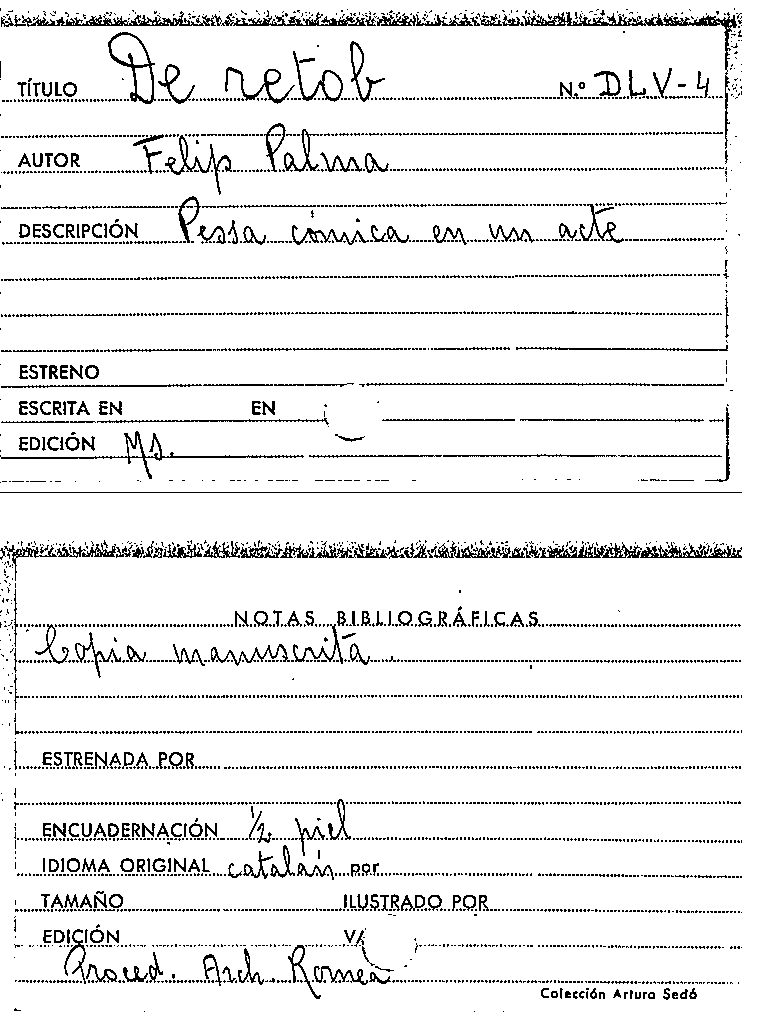 TÍTULO De retob N.º DLV-4
AUTOR Felip Palma
DESCRIPCIÓN Pessa cómica en un acte
ESTRENO
ESCRITA EN EN
EDICIÓN Ms.
NOTAS BIBLIOGRÁFICAS
Copia manuscrita.
ESTRENADA POR
ENCUADERNACIÓN 1/2 piel
IDIOMA ORIGINAL catalán por
TAMAÑO ILUSTRADO POR
EDICIÓN
Proced. Arch. Romea
Colección Arturo Sedó